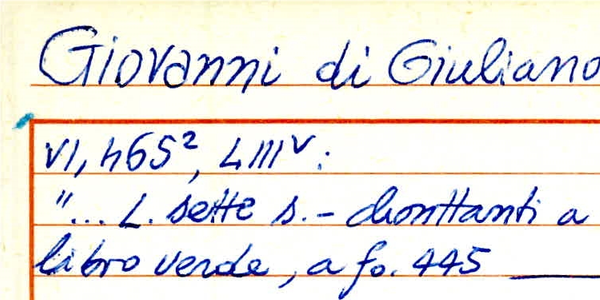 Giovanni di Giuliano
VI, 465², LIIIᵛ:
"... L. sette s. - chonttanti a
libro verde, a fo. 445